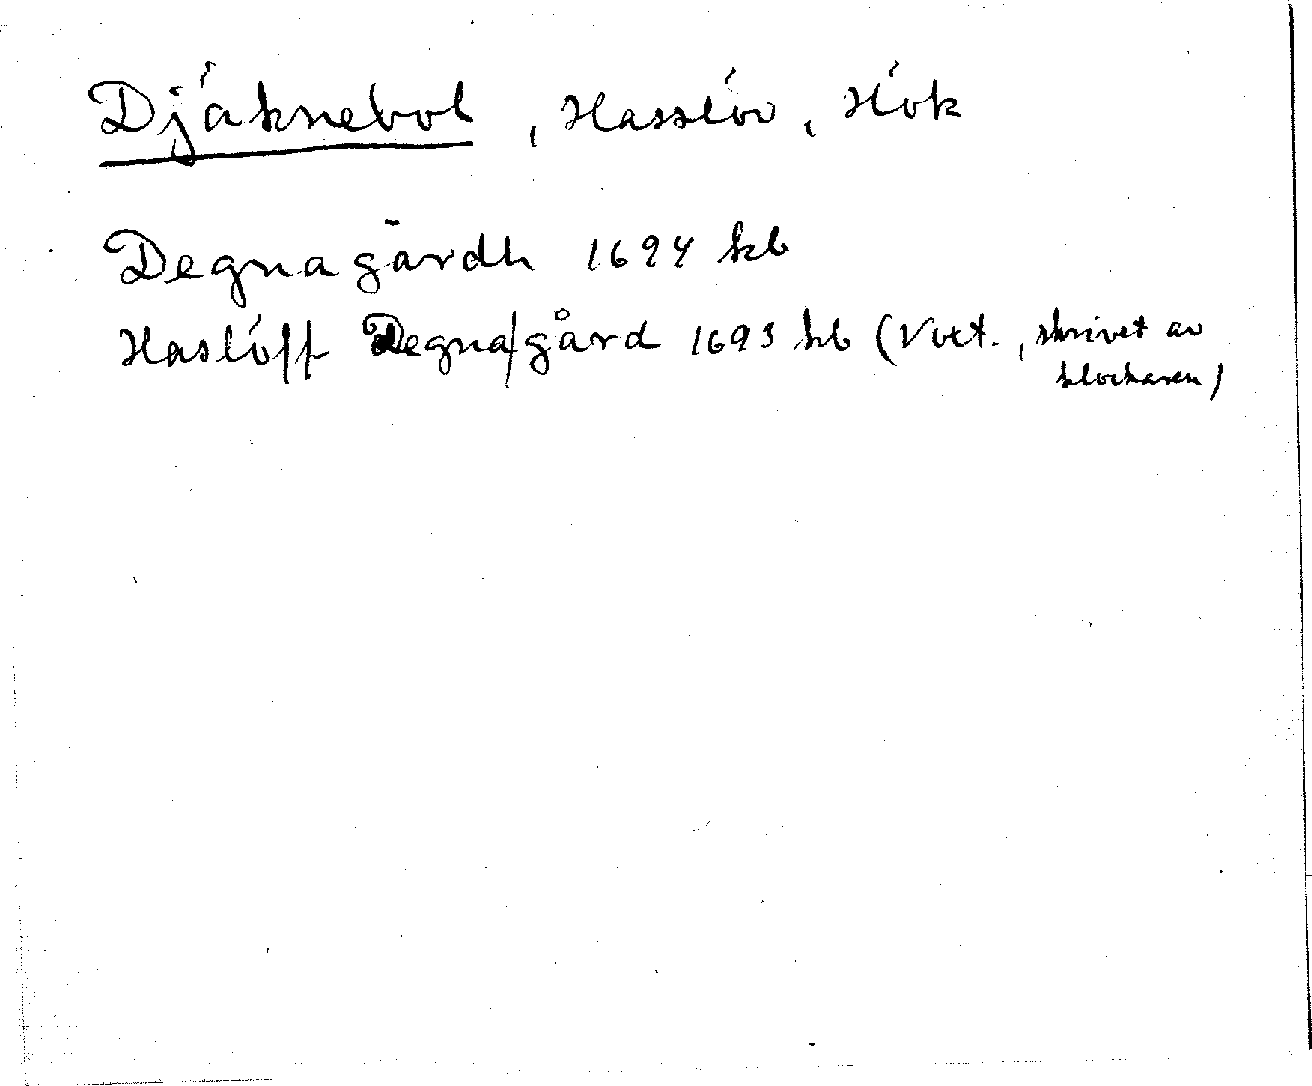 Djäknebol, Hasslöv, Hök
Degnagārdh 1694 kb
Haslöff Degna/gård 1693 kb (Vol. , skrivet av
klockaren)